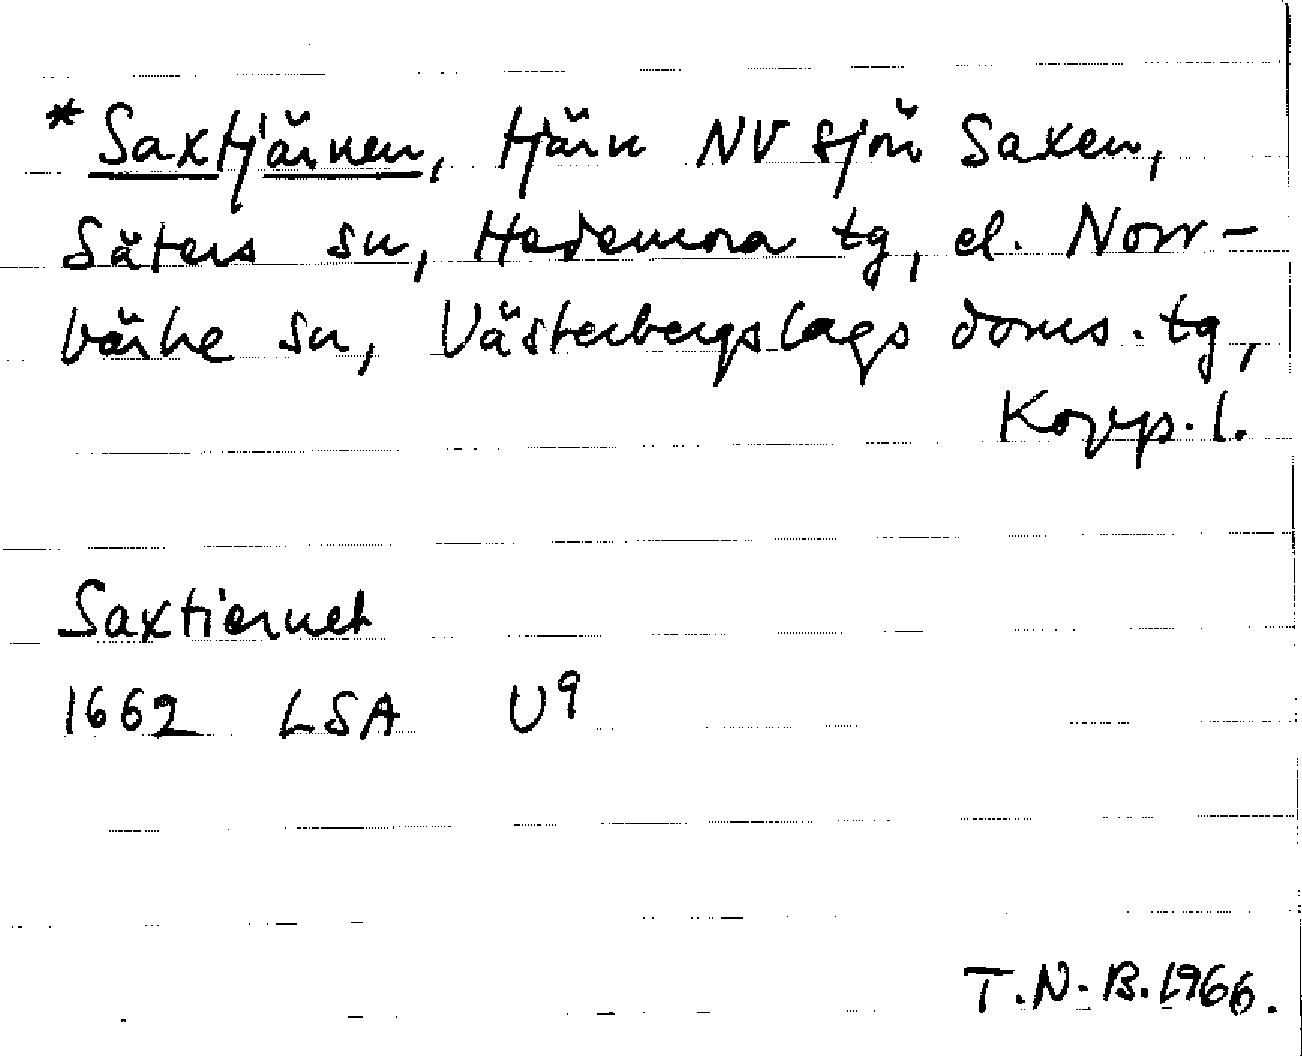 *Saxtjärnen, tjärn NV sjön Saxen,
Säters sn, Hedemora tg, el. Norr-
bärke sn, Västerbergslags doms. tg,
Kopp. l.
Saxtiernet
1662 LSA U9
T.N.B. 1966.